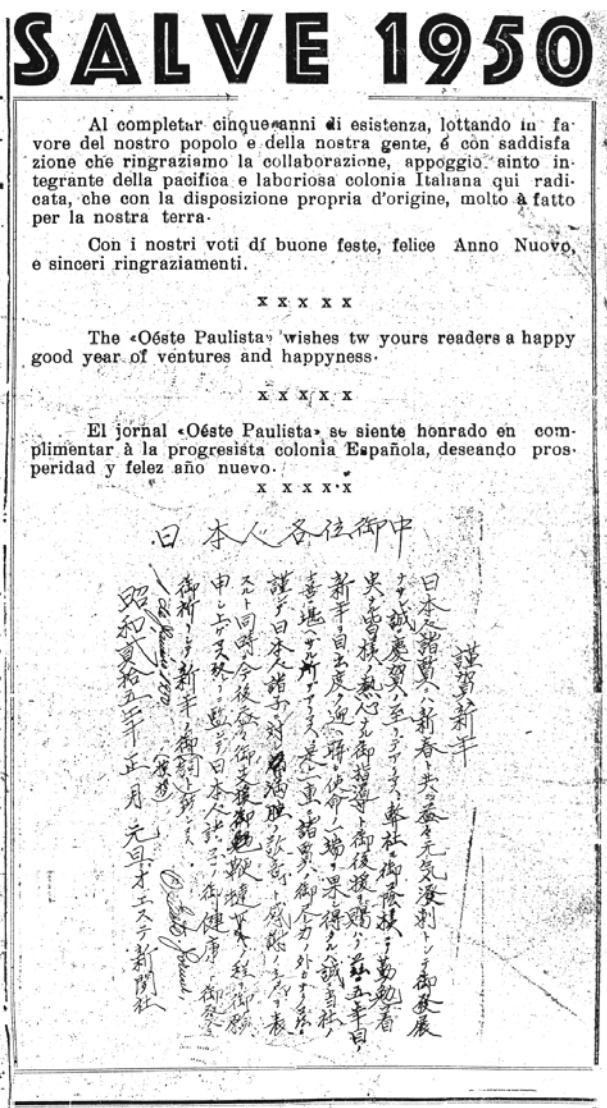 SALVE 1950
Al completar cinque anni di esistenza, lottando in fa-
vore del nostro popolo e della nostra gente, é con saddisfa
zione che ringraziamo la collaborazione, appoggio ainto in-
tegrante della pacifica e laboriosa colonia Italiana qui radi-
cata, che con la disposizione propria d'origine, molto à fatto
per la nostra terra.
Con i nostri voti di buone feste, felice Anno Nuovo,
e sinceri ringraziamenti.
x x x x x
The «Oéste Paulista» wishes tw yours readers a happy
good year of ventures and happyness.
x x x x x
El jornal «Oéste Paulista» se siente honrado en com-
plimentar à la progresista colonia Española, deseando pros-
peridad y felez año nuevo.
x x x x x
日本人各位御中
謹賀新年
日本人諸賢ニハ新春ト共ニ益々元気溌剌トシテ御発展
ナサレ誠ニ慶賀ノ至リデアリマス、弊社モ御蔭様ニテ勤勉着
実ナル皆様ノ熱心ナル御指導ト御後援ヲ賜ハリ五年目ノ
新年ヲ目出度ク迎ヘ
謹デ日本人諸子ニ対シ満腔ノ敬意ト感謝
スルト同時ニ今後益々御支援御勉鞭撻
申シ上ゲマス 日本人諸 御健康ト御発展
御祈リシテ新年ノ御詞ト致シマス
昭和貳拾五年 正月 元旦 オエステ新聞社